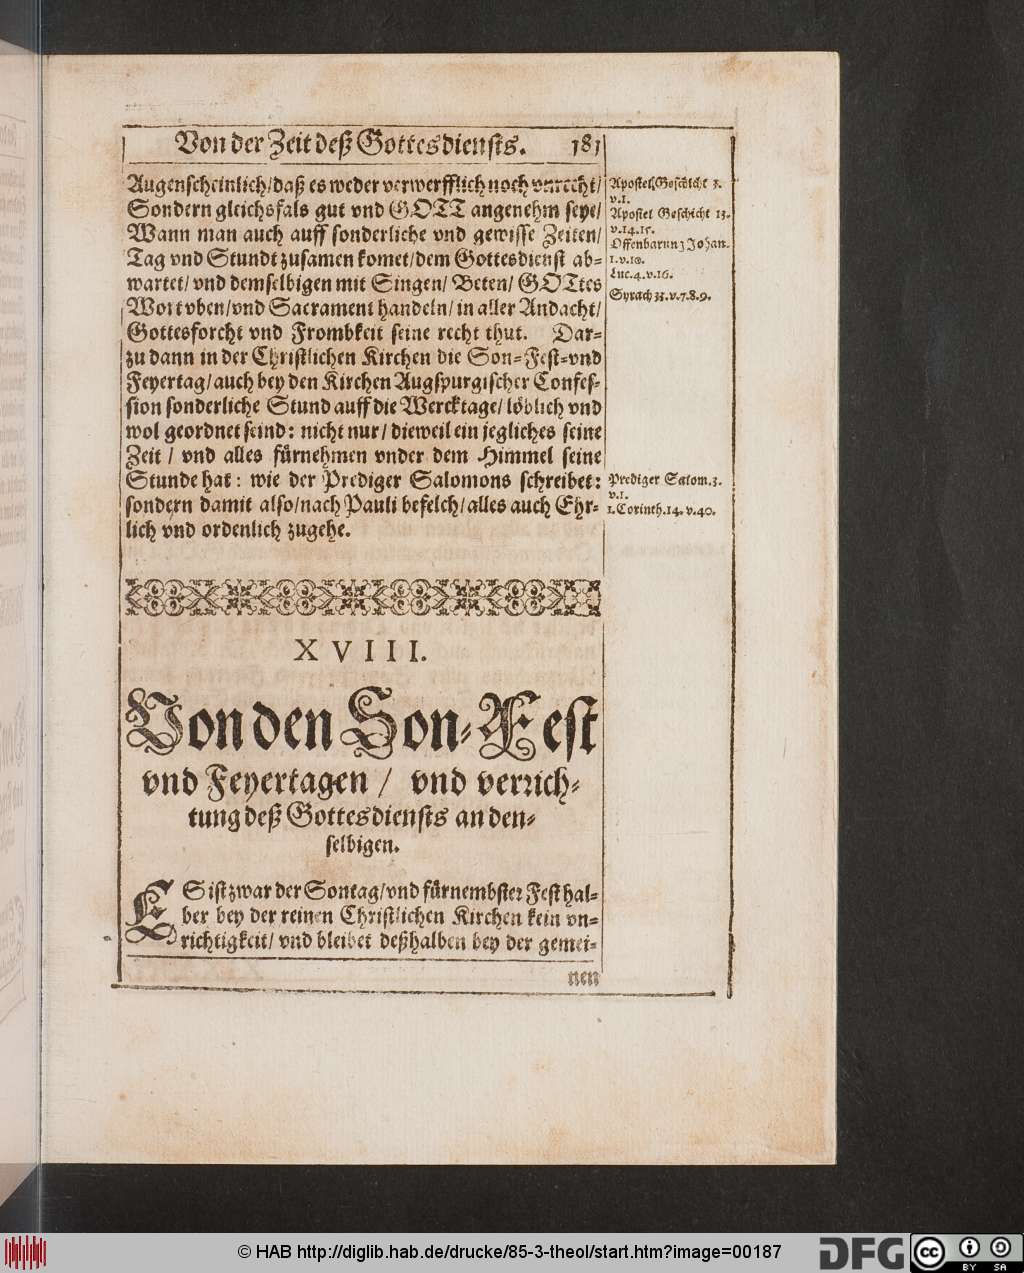 Von der Zeit deß Gottesdiensts. 181
Augenscheinlich/ daß es weder verwerfflich noch vnrecht/
Sondern gleichsfals gut vnd GOTT angenehm seye/
Wann man auch auff sonderliche vnd gewisse Zeiten/
Tag vnd Stundt zusamen komet/ dem Gottesdienst ab-
wartet/ vnd demselbigen mit Singen/ Beten/ GOTtes
Wort vben/ vnd Sacrament handeln/ in aller Andacht/
Gottesforcht vnd Frombkeit seine recht thut. Dar-
zu dann in der Christlichen Kirchen die Son-Fest-vnd
Feyertag/ auch bey den Kirchen Augspurgischer Confes-
sion sonderliche Stund auff die Wercktage/ löblich vnd
wol geordnet seind: nicht nur/ dieweil ein jegliches seine
Zeit / vnd alles fürnehmen vnder dem Himmel seine
Stunde hat: wie der Prediger Salomons schreibet:
sondern damit also/ nach Pauli befelch/ alles auch Ehr-
lich vnd ordenlich zugehe.
Apostel Geschicht 3.
v.1.
Apostel Geschicht 13.
v.14.15.
Offenbarung Johan.
1.v.10.
Luc.4.v.16.
Syrach 33.v.7.8.9.
Prediger Salom.3.
v.1.
1.Corinth.14.v.40.
XVIII.
Von den Son-Fest
vnd Feyertagen / vnd verrich-
tung deß Gottesdiensts an den-
selbigen.
ES ist zwar der Sontag/ vnd fürnembster Fest hal-
ber bey der reinen Christlichen Kirchen kein vn-
richtigkeit/ vnd bleibet deßhalben bey der gemei-
nen
© HAB http://diglib.hab.de/drucke/85-3-theol/start.htm?image=00187
DFG
cc
BY SA